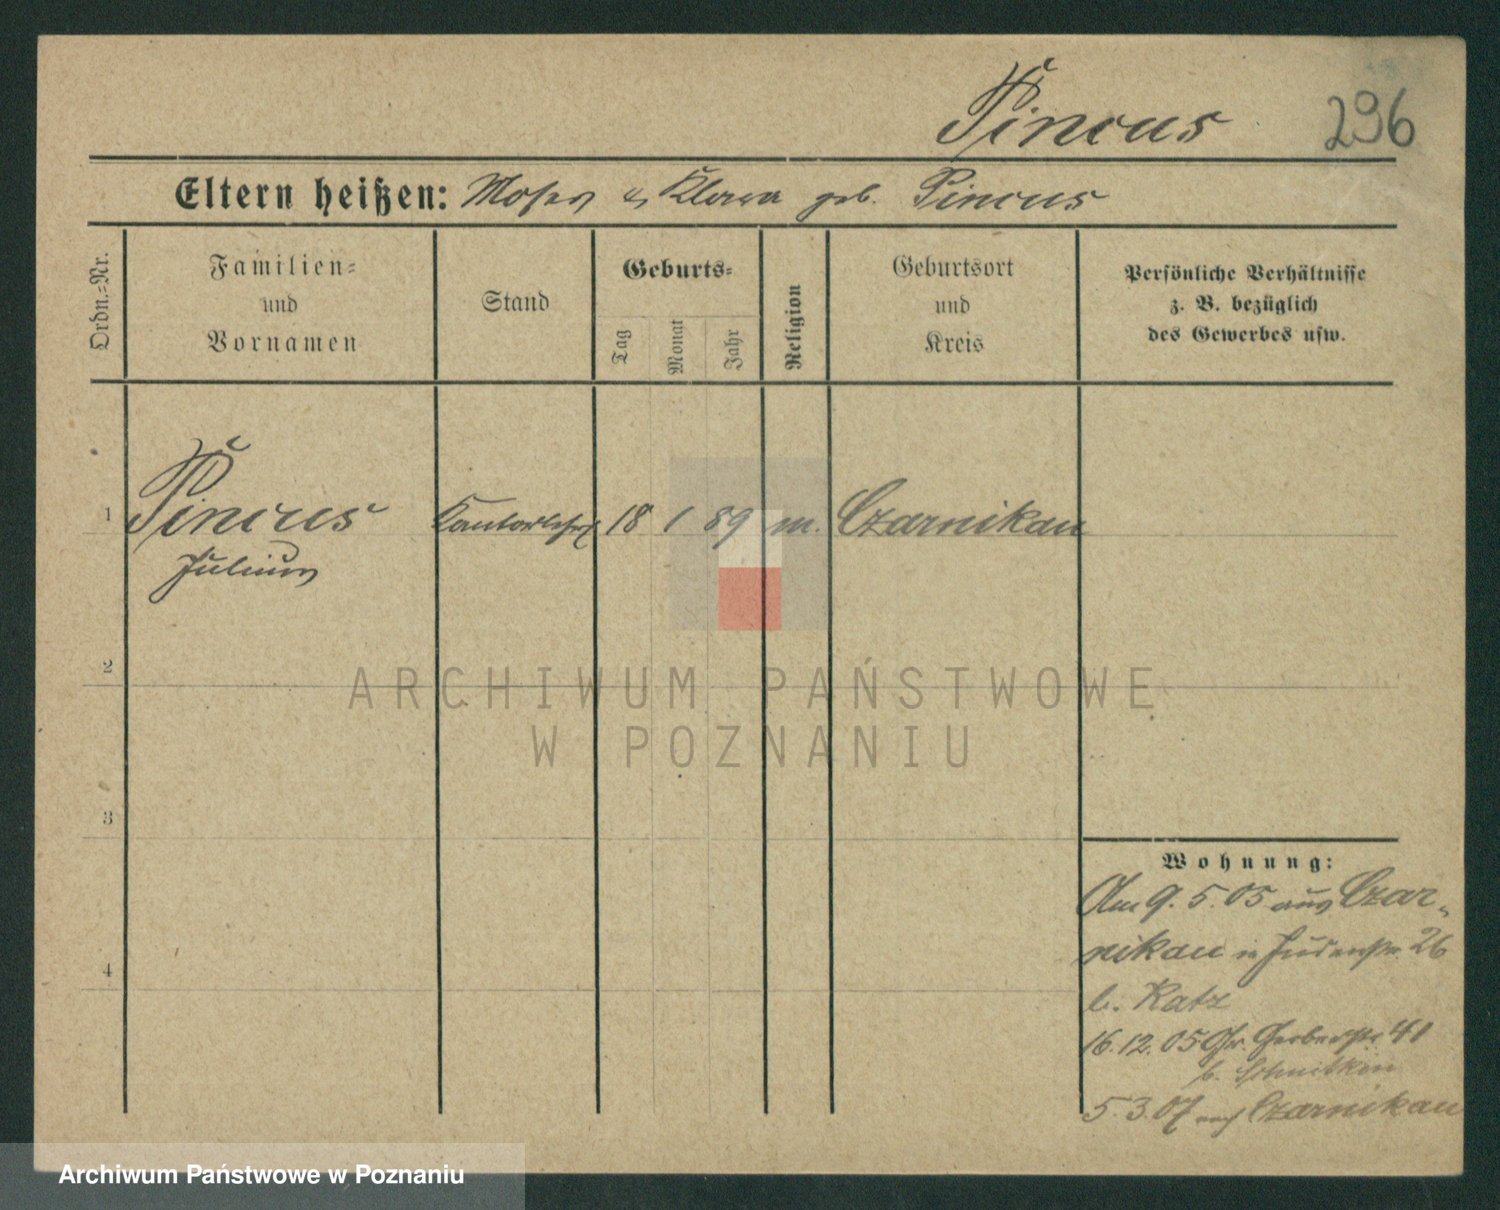 Pincus
296
Eltern heißen: Moses & Klara geb. Pincus
Ordn.-Nr.
Familien-
und
Vornamen
Stand
Geburts-
Tag
Monat
Jahr
Religion
Geburtsort
und
Kreis
Persönliche Verhältnisse
z. B. bezüglich
des Gewerbes usw.
1
Pincus
Julius
18
1
89
m.
Czarnikau
2
ARCHIWUM PAŃSTWOWE
W POZNANIU
3
4
Wohnung:
Am 9. 5. 05 aus Czar-
nikau in Judenstr. 26
b. Katz
16. 12. 05 Gr. Gerberstr 41
b.
5. 3. 07 nach Czarnikau
Archiwum Państwowe w Poznaniu